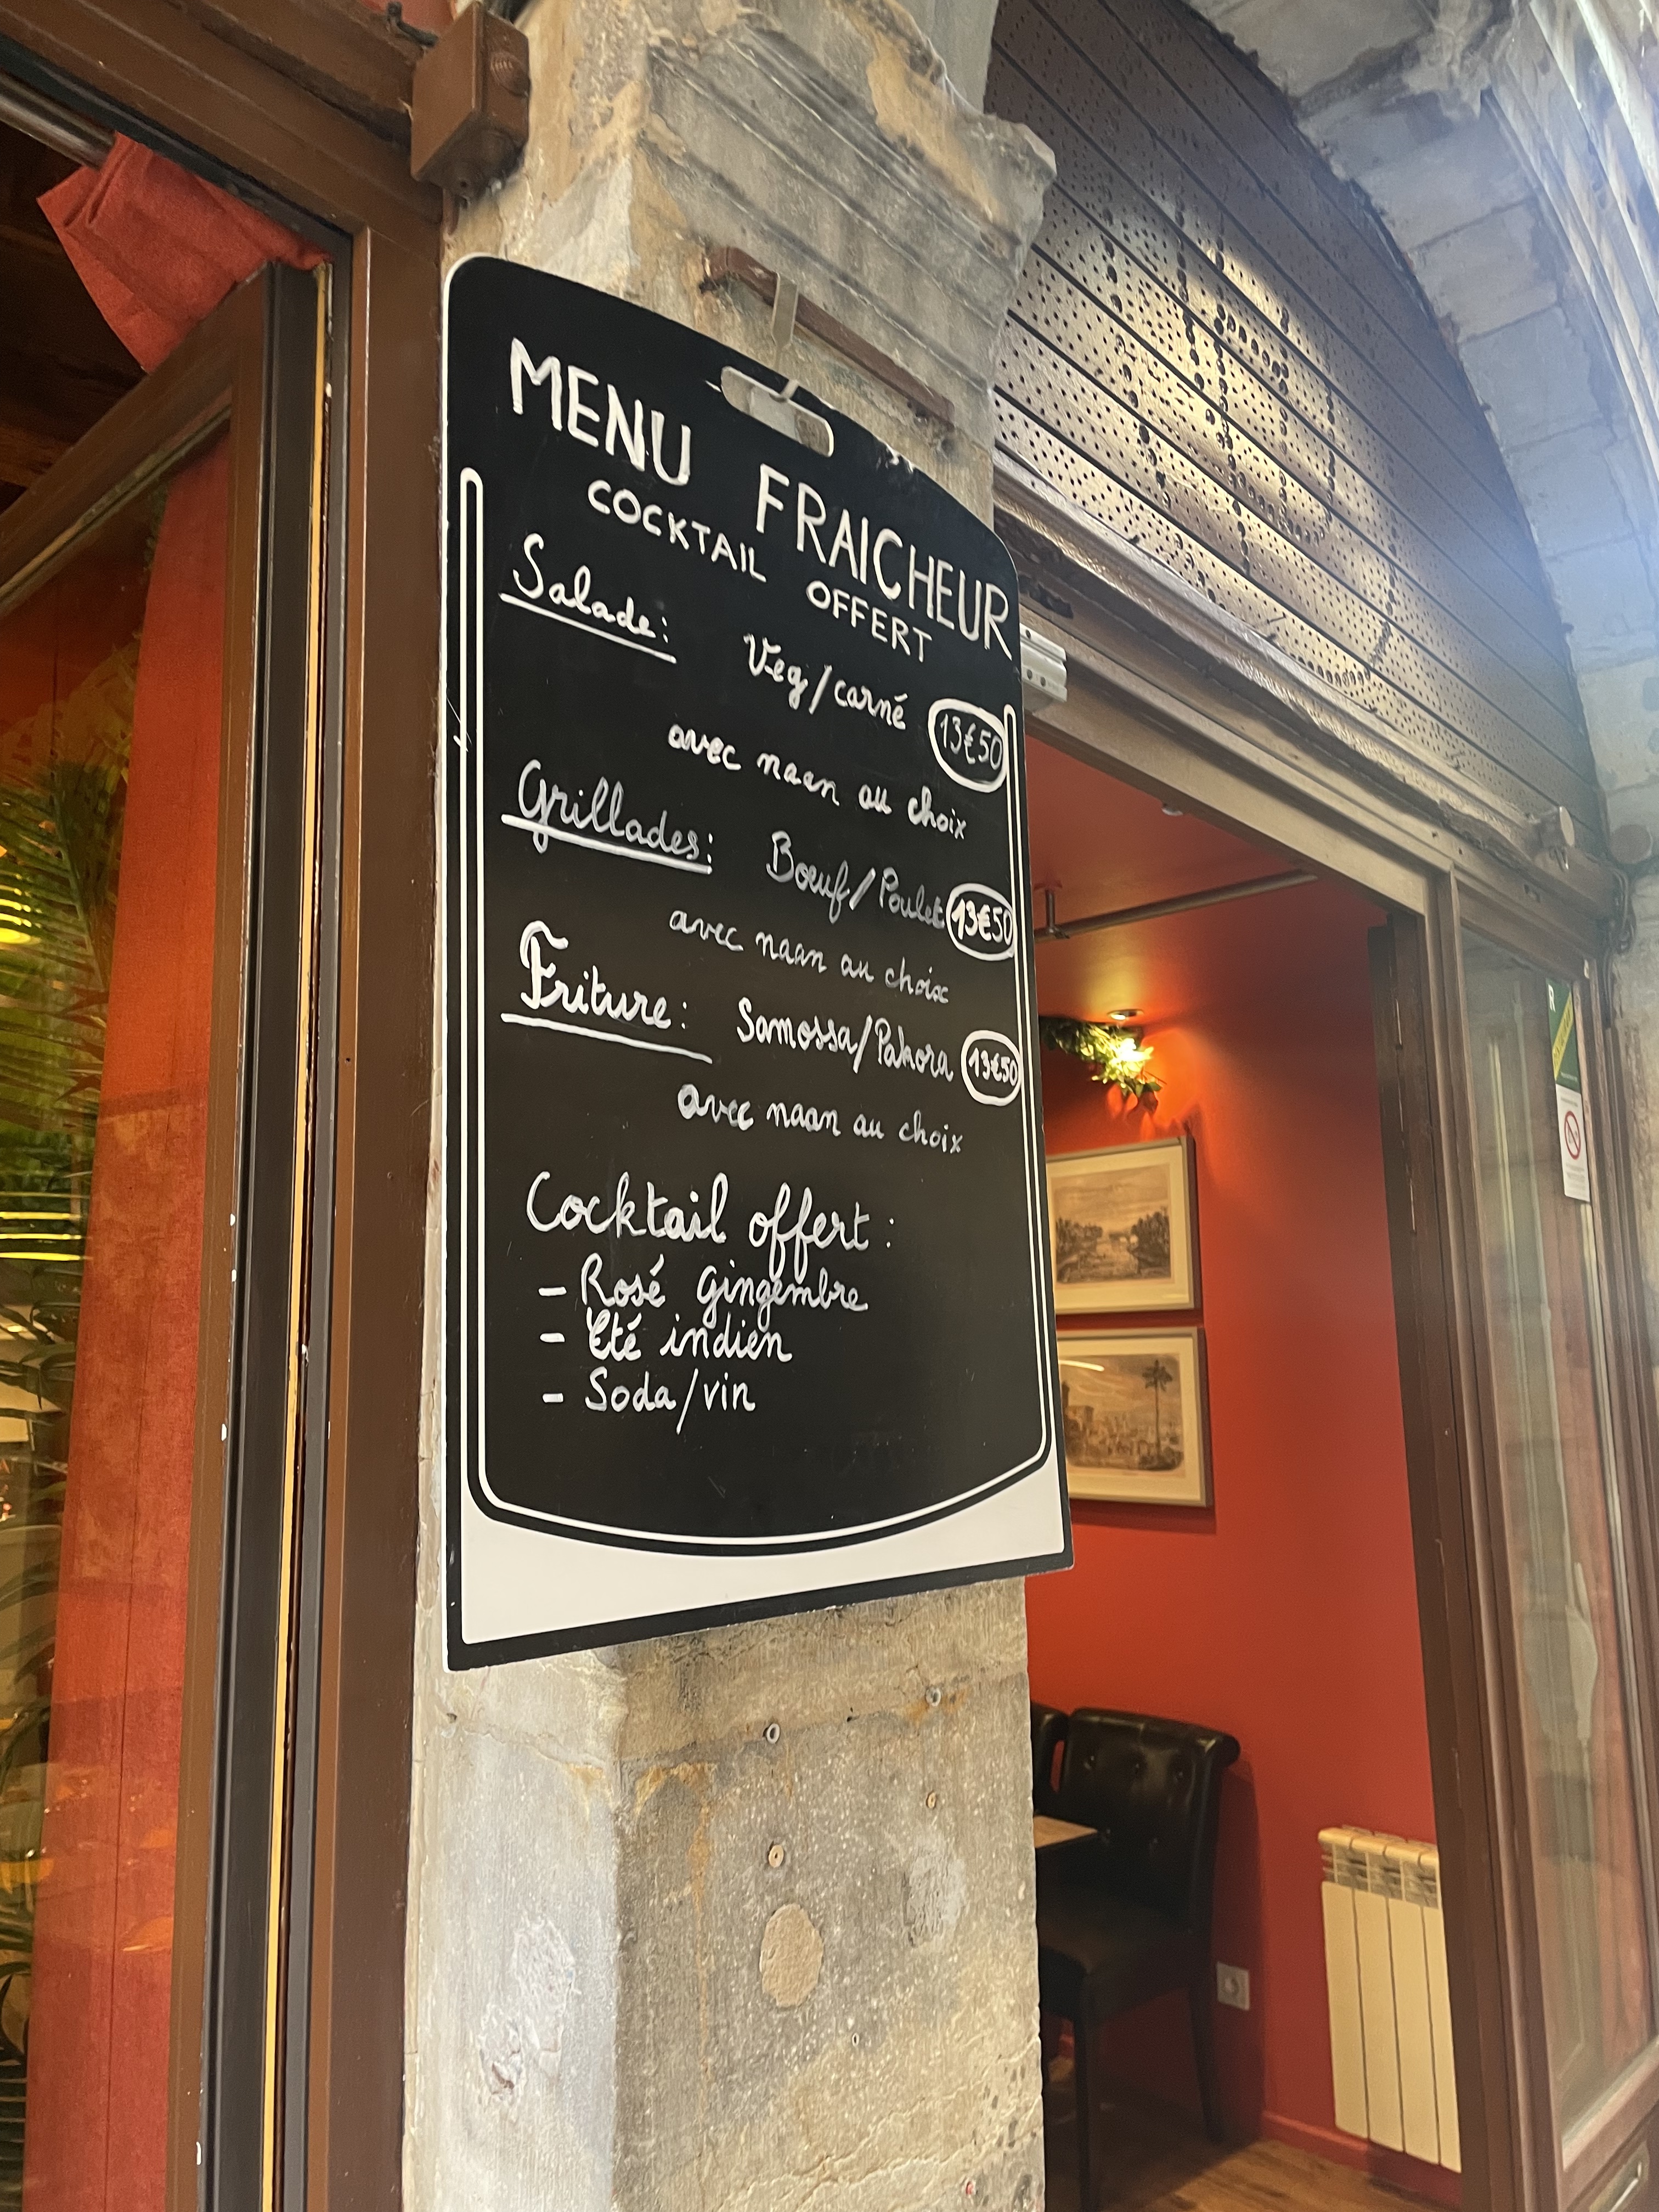 MENU FRAICHEUR
COCKTAIL OFFERT
Salade: Veg/carné 13€50
avec naan au choix
Grillades: Bœuf/Poulet 13€50
avec naan au choix
Friture: Samossa/Pakora 13€50
avec naan au choix
Cocktail offert:
- Rosé Gingembre
- Eté indien
- Soda/vin